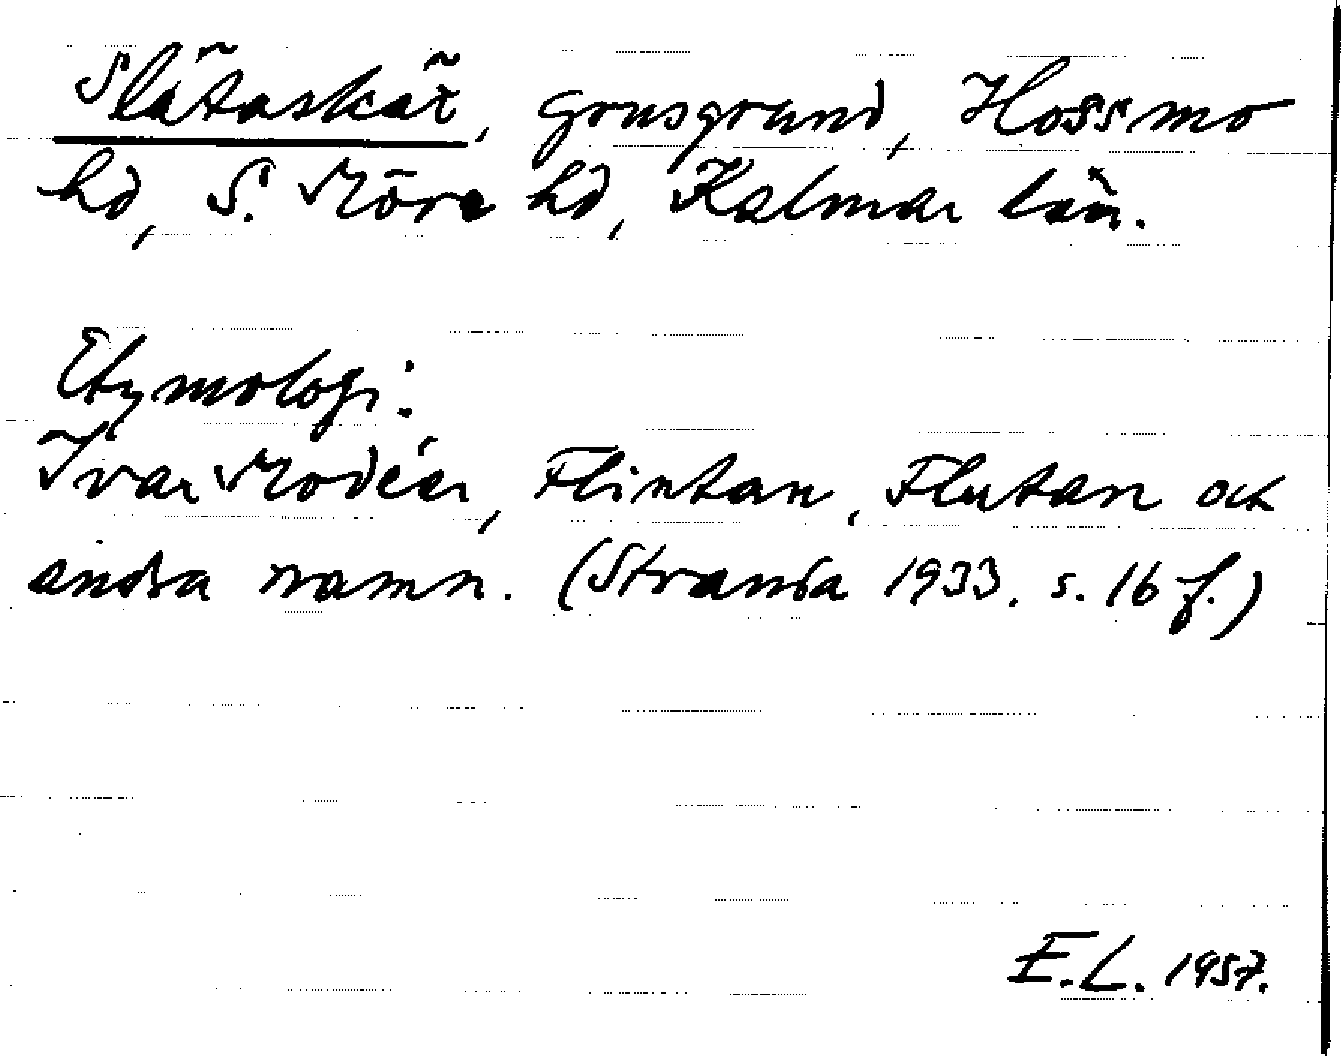 Slätaskär, grusgrund, Hossmo
hd, S. Möre hd, Kalmar län.
Etymologi:
Ivar Modéer, Flintan, Flutan och
andra namn. (Stranda 1933. s. 16 f.)
E.L. 1957.